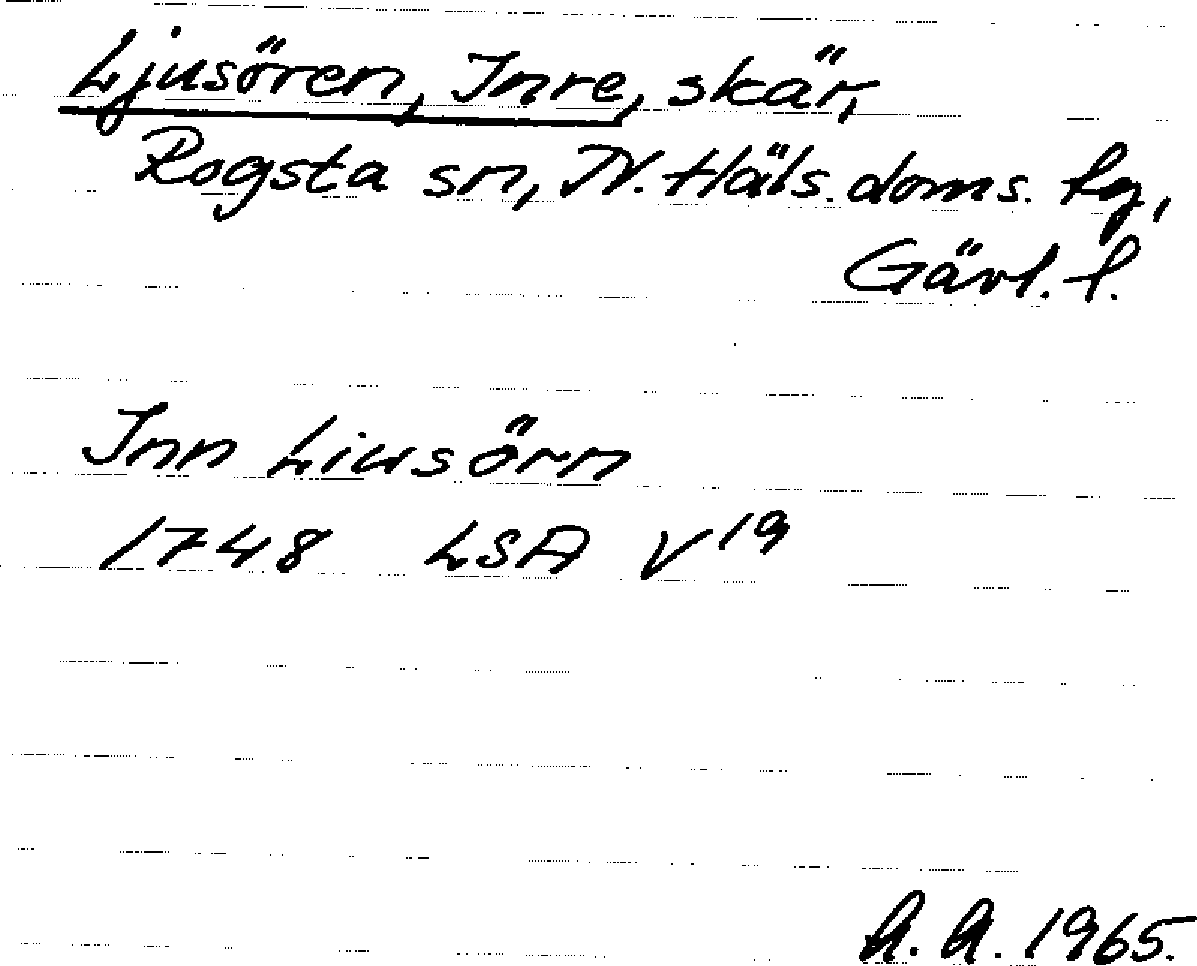 Ljusören, Inre, skär,
Rogsta sn, N. Häls. doms. tg,
Gävl. l.
Inn Liusörn
1748 LSA V19
A. A. 1965.